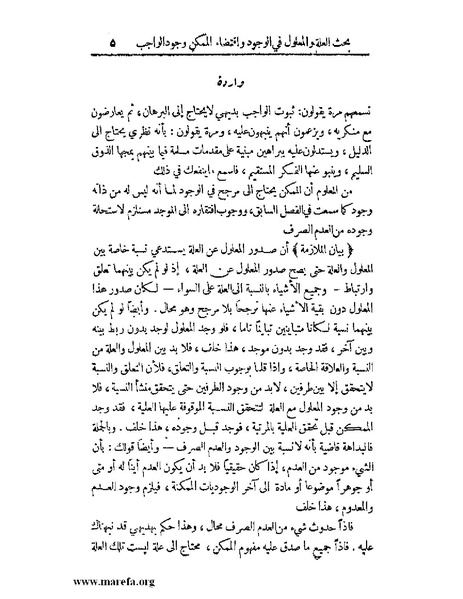 بحث العلة والمعلول في الوجود واقتضاء الممكن وجود الواجب ٥
واردة
تسمعهم مرة يقولون: ثبوت الواجب بديهي لايحتاج إلى البرهان، ثم يعارضون
مع منكريه، ويزعمون أنهم ينبهون عليه، ومرة يقولون: بأنه نظري يحتاج الى
الدليل، ويستدلون عليه ببراهين مبنية على مقدمات مسلمة فيا بينهم يمجها الذوق
السليم، وينبو عنها الفكر المستقيم، فاسمع ما ينفعك في ذلك
من المعلوم أن الممكن يحتاج الى مرجح في الوجود لما أنه ليس له من ذاته
وجود كما سمعت في الفصل السابق، ووجوب افتقاره الى الموجد مستلزم لاستحالة
وجوده من العدم الصرف
﴿ بيان الملازمة ﴾ أن صدور المعلول عن العلة يستدعي نسبة خاصة بين
المعلول والعلة حتى يصح صدور المعلول عن العلة، إذ لو لم يكن بينهما تعلق
وارتباط – وجميع الأشياء بالنسبة الى العلة على السواء – لكان صدور هذا
المعلول دون بقية الأشياء عنها ترجحا بلا مرجح وهو محال. وأيضا لو لم يكن
بينهما نسبة لكانا متباينين تباينا تاما، فلو وجد المعلول لوجد بدون ربط بينه
وبين آخر، فقد وجد بدون موجد، هذا خلف، فلا بد بين المعلول والعلة من
النسبة والعلاقة الخاصة، واذا قلنا بوجوب النسبة والتعلق، فلأن التعلق والنسبة
لا يتحقق إلا بين طرفين، لابد من وجود الطرفين حتى يتحقق منشأ النسبة، فلا
بد من وجود المعلول مع العلة لتتحقق النسبة الموقوفة عليها العلية، فقد وجد
الممكن قبل تحقق العلية بالمرتبة، فوجد قبل وجوده، هذا خلف. وبالجملة
فالبداهة قاضية بأنه لانسبة بين الوجود والعدم الصرف – وأيضا قولك: بأن
الشيء موجود من العدم، إذا كان حقيقيا فلا بد أن يكون العدم أينا له أو متى
أو جوهرا موضوعا أو مادة الى آخر الوجوديات الممكنة، فيلزم وجود العدم
والمعدوم، هذا خلف
فاذاً حدوث شيء من العدم الصرف محال، وهذا حكم بديهي قد نبهناك
عليه. فاذاً جميع ما صدق عليه مفهوم الممكن، محتاج الى علة ليست تلك العلة
www.marefa.org